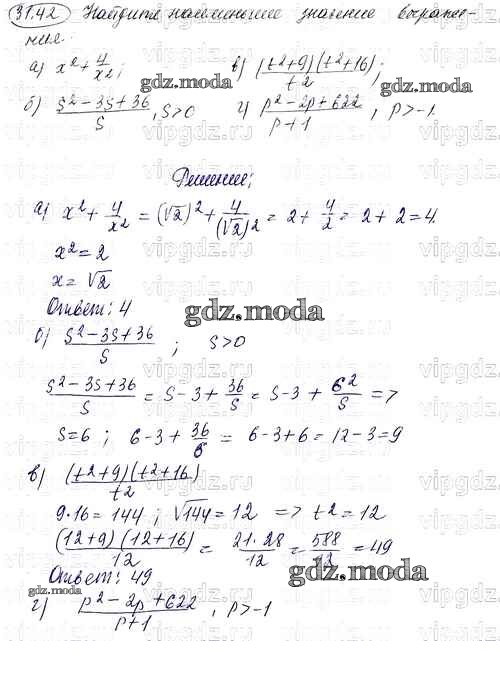 31.42 Найдите наименьшее значение выраже-
ния.
а) x²+4/x²; в) (t²+9)(t²+16)/t²;
б) s²-3s+36/s, s>0 г) p²-2p+622/p+1, p>-1.
Решение;
а) x²+4/x² = (√2)²+4/(√2)² = 2+4/2 = 2+2=4.
x²=2
x=√2
Ответ: 4
gdz.moda
б) s²-3s+36/s ; s>0
s²-3s+36/s = s-3+36/s = s-3+6²/s =>
s=6 ; 6-3+36/6 = 6-3+6=12-3=9
в) (t²+9)(t²+16)/t²
9·16=144 ; √144=12 => t²=12
(12+9)(12+16)/12 = 21·28/12 = 588/12 = 49
Ответ: 49
г) p²-2p+622/p+1 , p>-1